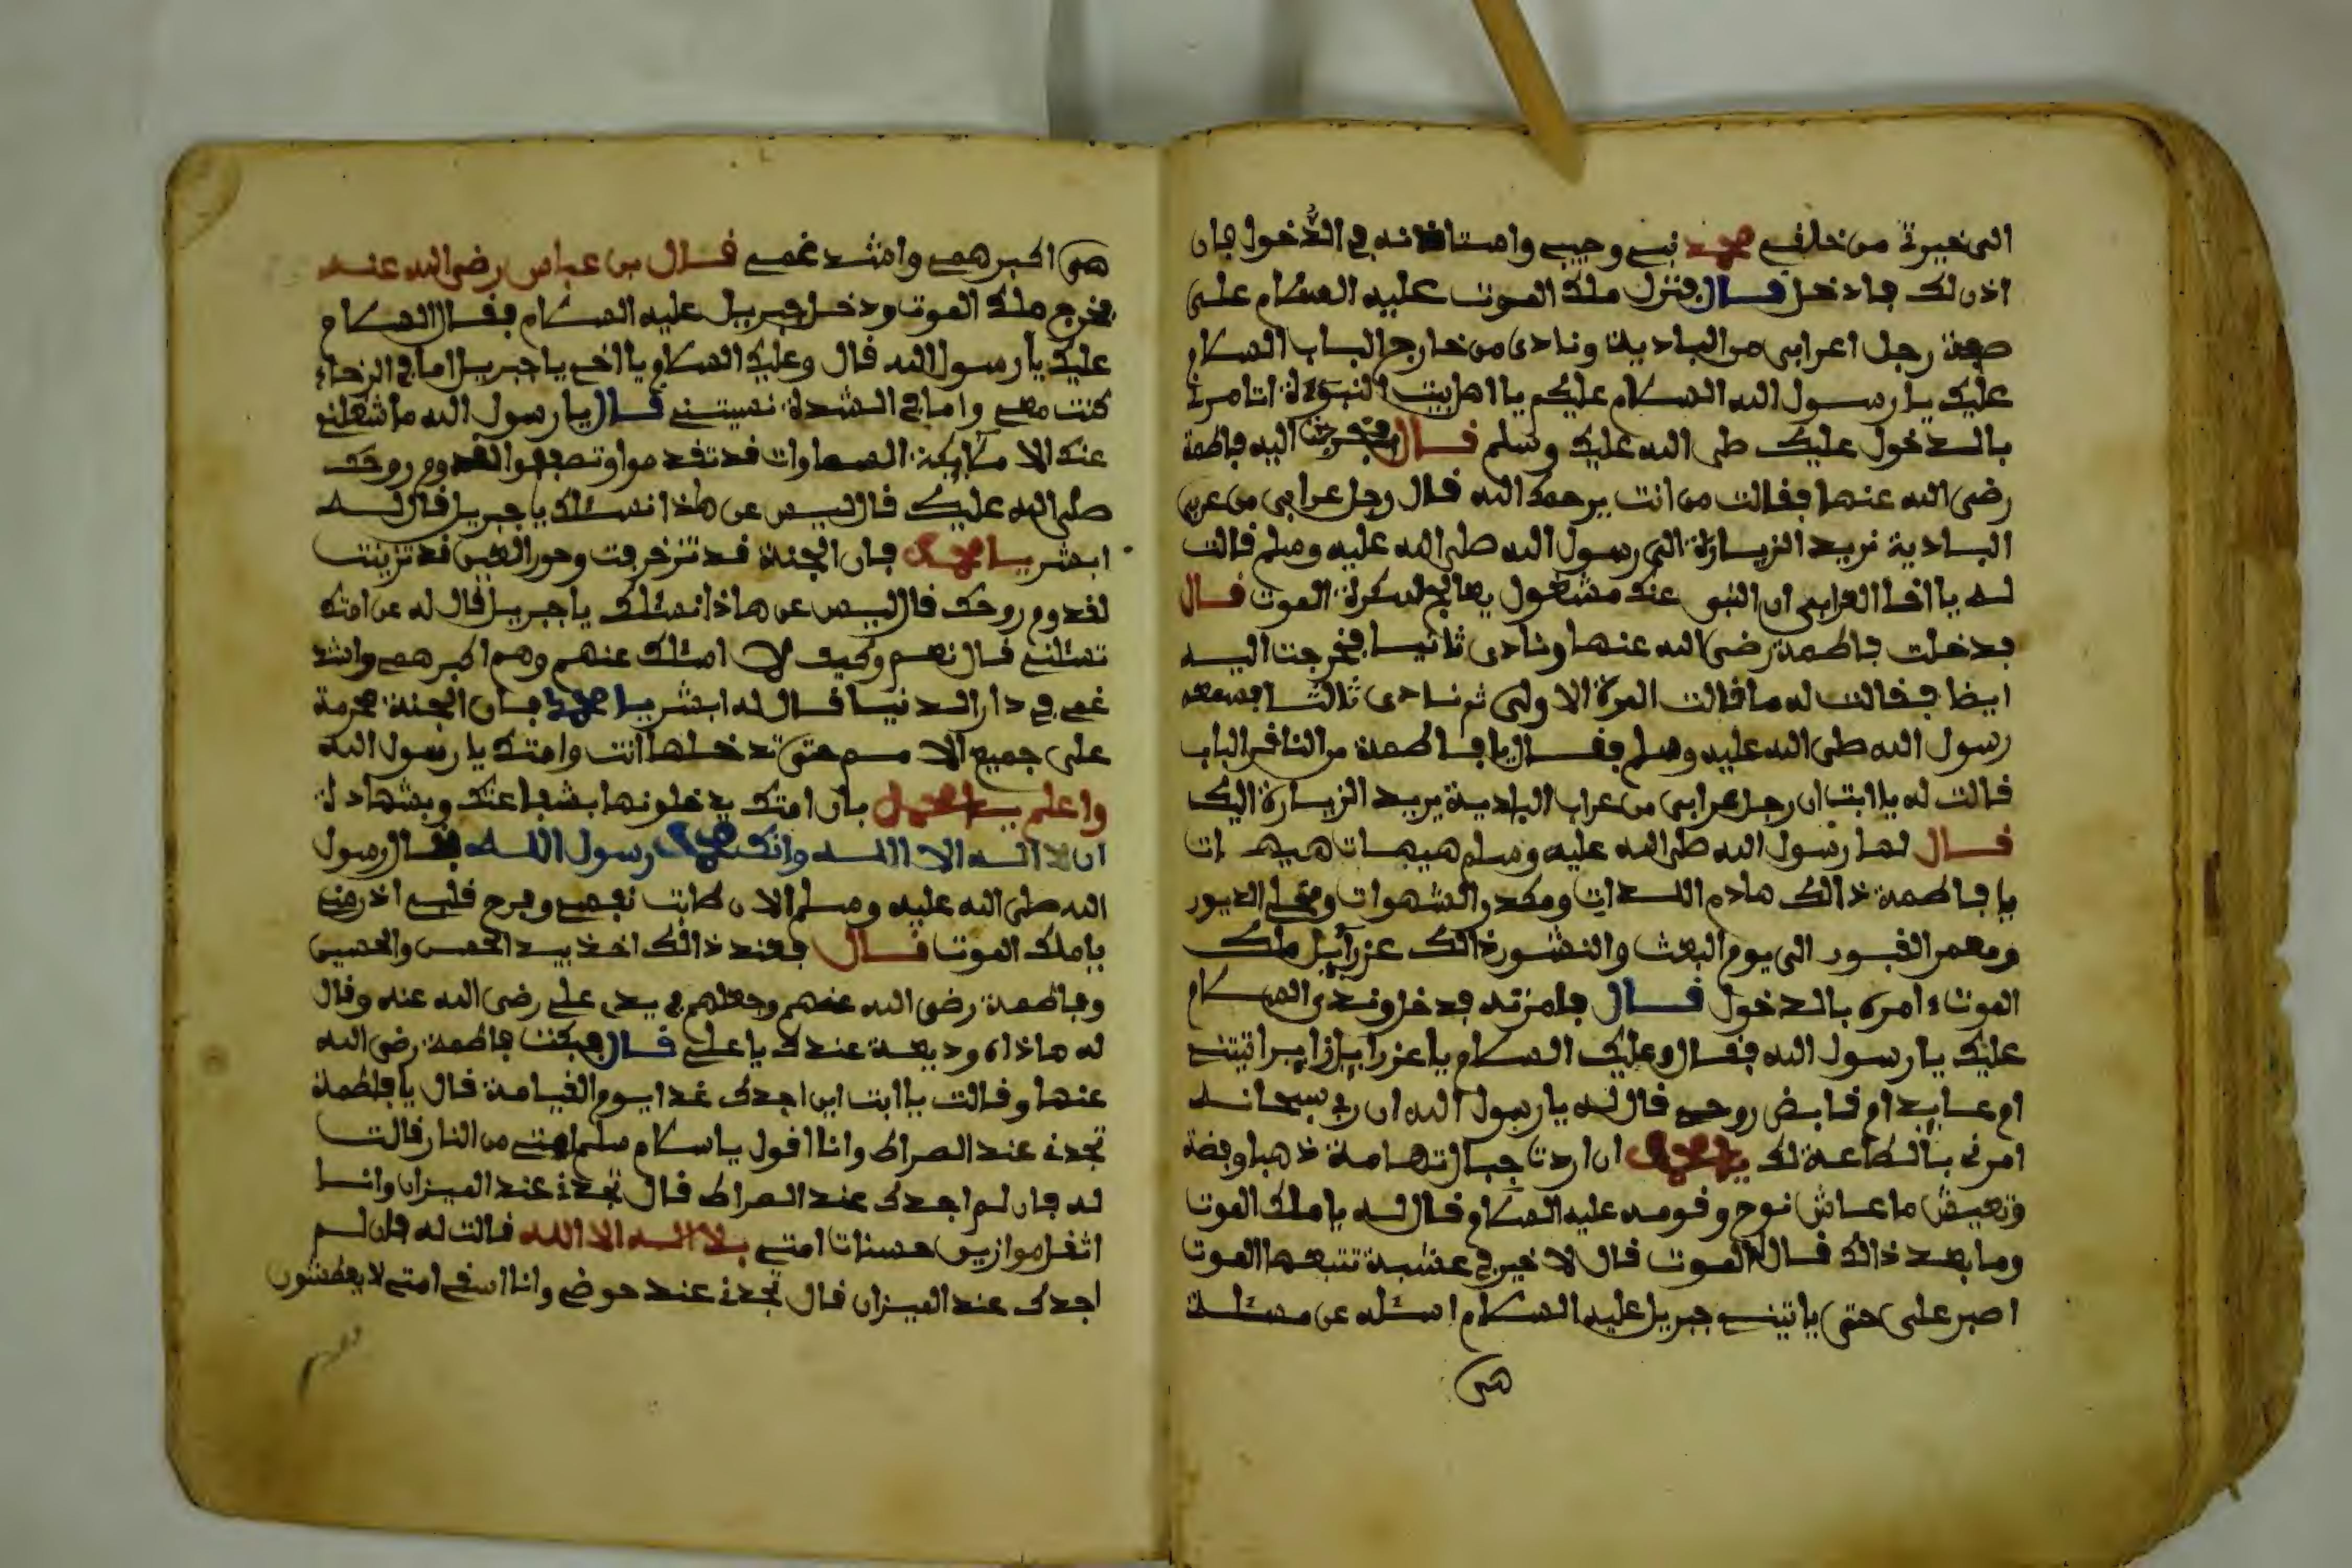 الى خيرتى من خلقى محمد نبيى وحبيبى واستاذنه في الدُّخول فان
اذن لك فادخل قال فنزل ملك الموت عليه السلام على
صفة رجل اعرابي من البادية ونادى من خارج الباب السلام
عليك يا رسول الله السلام عليكم يا اهل بيت النبوءة اتامرنى
بالدخول عليك صلى الله عليك وسلم قال فخرجت اليه فاطمة
رضى الله عنها فقالت من انت يرحمك الله قال رجل عرابي من عرب
البادية نريد الزيارة الى رسول الله صلى الله عليه وسلم قالت
له يا اخا العرابي ان النبي عنك مشغول يعالج سكرة الموت قال
فدخلت فاطمة رضى الله عنها ونادى ثانيا فخرجت اليه
ايضا فقالت له ما قالت المرة الاولى ثم نادى ثالثا فسمعه
رسول الله صلى الله عليه وسلم فقال يا فاطمة من النافر الباب
قالت له يا ابت ان رجل عرابي من عراب البادية يريد الزيارة اليك
قال لها رسول الله صلى الله عليه وسلم هيهات هيهات
يا فاطمة ذالك هادم اللذات ومكدر الشهوات ومخلى الديور
ومعمر القبور الى يوم البعث والنشور ذالك عزرايل ملك
الموت امره بالدخول قال فامرته فدخل وندى السلام
عليك يا رسول الله فقال وعليك السلام يا عزرايل زايرا تيتنى
ام عايد ام قابض روحى قال له يا رسول الله ان ربى سبحانه
امرنى بالطاعة لك يا محمد ان اردت جبال تهامة ذهبا وفضة
وتعيش ما عاش نوح وقومه عليه السلام قال له يا ملك الموت
وما بعد ذالك قال الموت قال لا خير في عشبة تتبعها الموت
اصبر على حتى ياتينى جبريل عليه السلام اسئله عن مسئلة
هى
هى اكبر همى واشد غمى قال بن عباس رضى الله عنه
فخرج ملك الموت ودخل جبريل عليه السلام فقال السلام
عليك يا رسول الله قال وعليك السلام يا اخى يا جبريل اما في الرخاء
كنت معى واما في الشدة نسيتنى قال يا رسول الله ما شغلنى
عنك الا ملايكة السماوات قد تقدموا وتصففوا لقدوم روحك
صلى الله عليك قال ليس عن هذا نسئلك يا جبريل قال له
ابشر يا محمد فان الجنة قد تزخرفت وحور العين قد تزينت
لقدوم روحك قال ليس عن هاذا نسئلك يا جبريل قال له عن امتك
تسئلنى قال نعم وكيف لا اسئلك عنهم وهم اكبر همى واشد
غمى في دار الدنيا قال له ابشر يا محمد فان الجنة محرمة
على جميع الامم حتى تدخلها انت وامتك يا رسول الله
واعلم يا محمد بان امتك يدخلونها بشفاعتك وبشهادة
ان لا اله الا الله وانك محمد رسول الله فقال رسول
الله صلى الله عليه وسلم الان طابت نفسى وفرح قلبى اذر منى
يا ملك الموت قال فعند ذالك اخذ بيد الحسن والحسين
وفاطمة رضى الله عنهم وجعلهم في يدى على رضى الله عنه وقال
له هاذاه وديعة عندك يا على قال فبكت فاطمة رضى الله
عنها وقالت يا ابت اين اجدك غدا يوم القيامة قال يا فاطمة
تجدنى عند الصراط وانا اقول يا سلام سلم امتى من النار قالت
له فان لم اجدك عند الصراط قال تجدنى عند الميزان وانا
اثقل موازين حسنات امتى بلا اله الا الله قالت له فان لم
اجدك عند الميزان قال تجدنى عند حوضى وانا اسقى امتى لا يعطشون